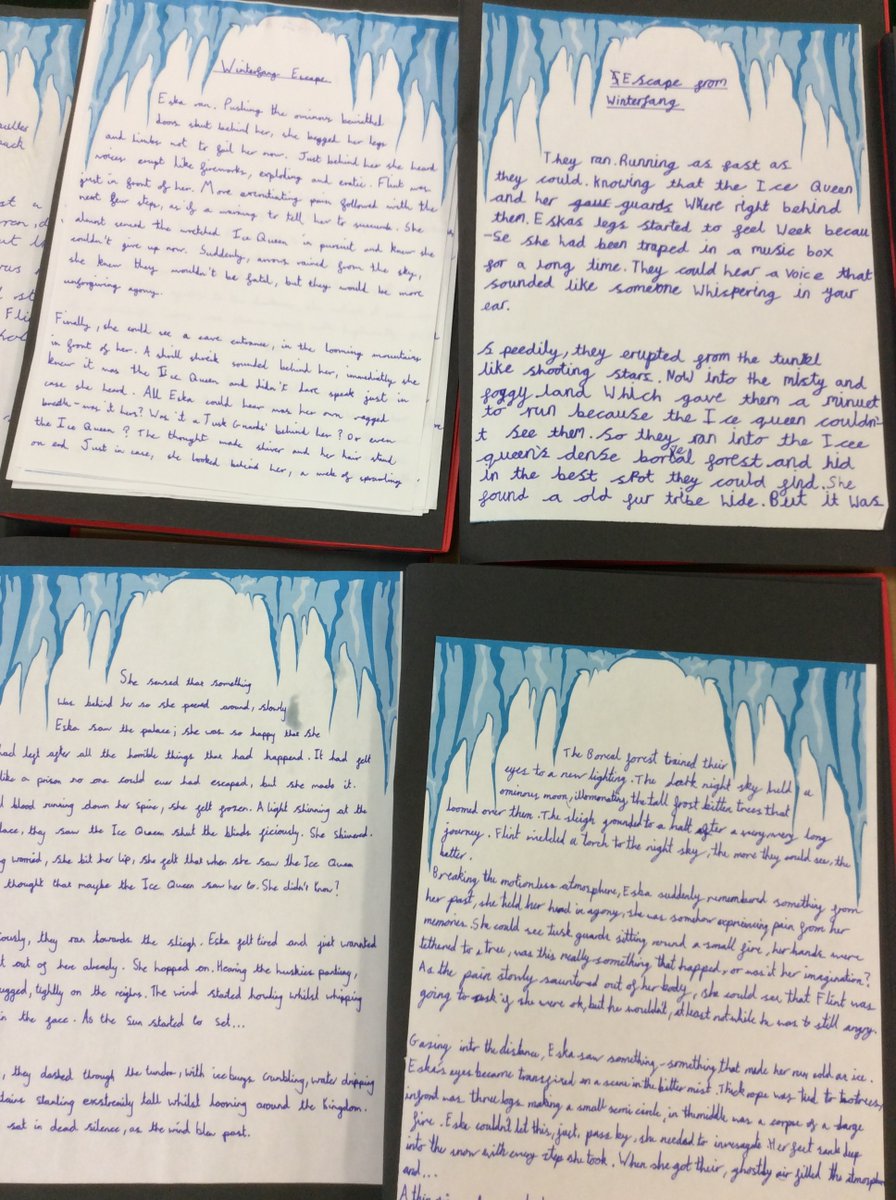 Winterfang Escape
Eska ran. Pushing the ominous bewitched
doors shut behind her, she begged her legs
and limbs not to fail her now. Just behind her she heard
voices erupt like fireworks, exploding and eratic. Flint was
just in front of her. More excrutiating pain followed with the
next few steps, as if a warning to tell her to succumb. She
almost sensed the wretched Ice Queen in pursuit and knew she
couldn't give up now. Suddenly, arrows rained from the sky,
she knew they wouldn't be fatal, but they would be more
unforgiving agony.
Finally, she could see a cave entrance, in the looming mountains
in front of her. A shrill shreik sounded behind her, immediatly she
knew it was the Ice Queen and didn't dare speak just in
case she heard. All Eska could hear was her own ragged
breath - was it hers? Was it a Tusk Guards' behind her? Or even
the Ice Queen? The thought made shiver and her hair stand
on end. Just in case, she looked behind her, a web of sprawling
Escape from
Winterfang
They ran. Running as fast as
they could. Knowing that the Ice Queen
and her guards Where right behind
them. Eskas legs started to feel Week becau
-se she had been traped in a music box
for a long time. They could hear a voice that
sounded like someone Whispering in your
ear.
Speedily, they erupted from the tunnel
like shooting stars. Now into the misty and
foggy land Which gave them a minuet
to run because the Ice queen couldn'
t see them. So they ran into the Icee
queen's dense forest and hid
in the best spot they could find. She
found a old fur tribe hide. But it was
She sensed that something
was behind her so she peered around, slowly
Eska saw the palace; she was so happy that she
had left after all the horrible things that had happend. It had felt
like a prison no one could ever had escaped, but she made it.
blood running down her spine, she felt frozen. A light shinning at the
lace, they saw the Ice Queen shut the blinds ficiously. She shivered.
worried, she bit her lip, she felt that when she saw the Ice Queen
thought that maybe the Ice Queen saw her to. She didn't know?
iously, they ran towards the sliegh. Eska felt tired and just wannted
out of here already. She hopped on. Hearing the huskies panting,
ugged, tightly on the reighns. The wind started howling whilst whipping
in the face. As the Sun started to set...
, they dashed through the tundra, with ice burgs crumbling, water dripping
tains standing exstremly tall whilst looming around the kingdom.
sat in dead silence, as the wind blew past.
The Boreal forest trained their
eyes to a new lighting. The dark night sky held a
ominous moon, illomonating the tall frost bitten trees that
loomed over them. The sleigh grounded to a halt after a very, very long
journey. Flint wielded a torch to the night sky, the more they could see, the
better.
Breaking the motionless atmosphere, Eska suddenly remembered something from
her past, she held her head in agony, she was somehow expriencing pain from her
memories. She could see tusk guards sitting round a small fire, her hands were
tethered to a tree, was this really something that happened, or was it her imagination?
As the pain slowly sauntered out of her body, she could see that Flint was
going to ask if she were ok, but he wouldn't, at least not while he was to still angry.
Gazing into the distance, Eska saw something - something that made her run cold as ice.
Eska's eyes became transfixed on a scene in the bitter mist. Thick rope was tied to two trees,
infrond was three logs making a small semi circle, in the middle was a corpse of a large
fire. Eska couldn't let this, just, pass by, she needed to invesagate. Her feet sank deep
into the snow with every step she took. When she got their, ghostly air filled the atmosphere
and...